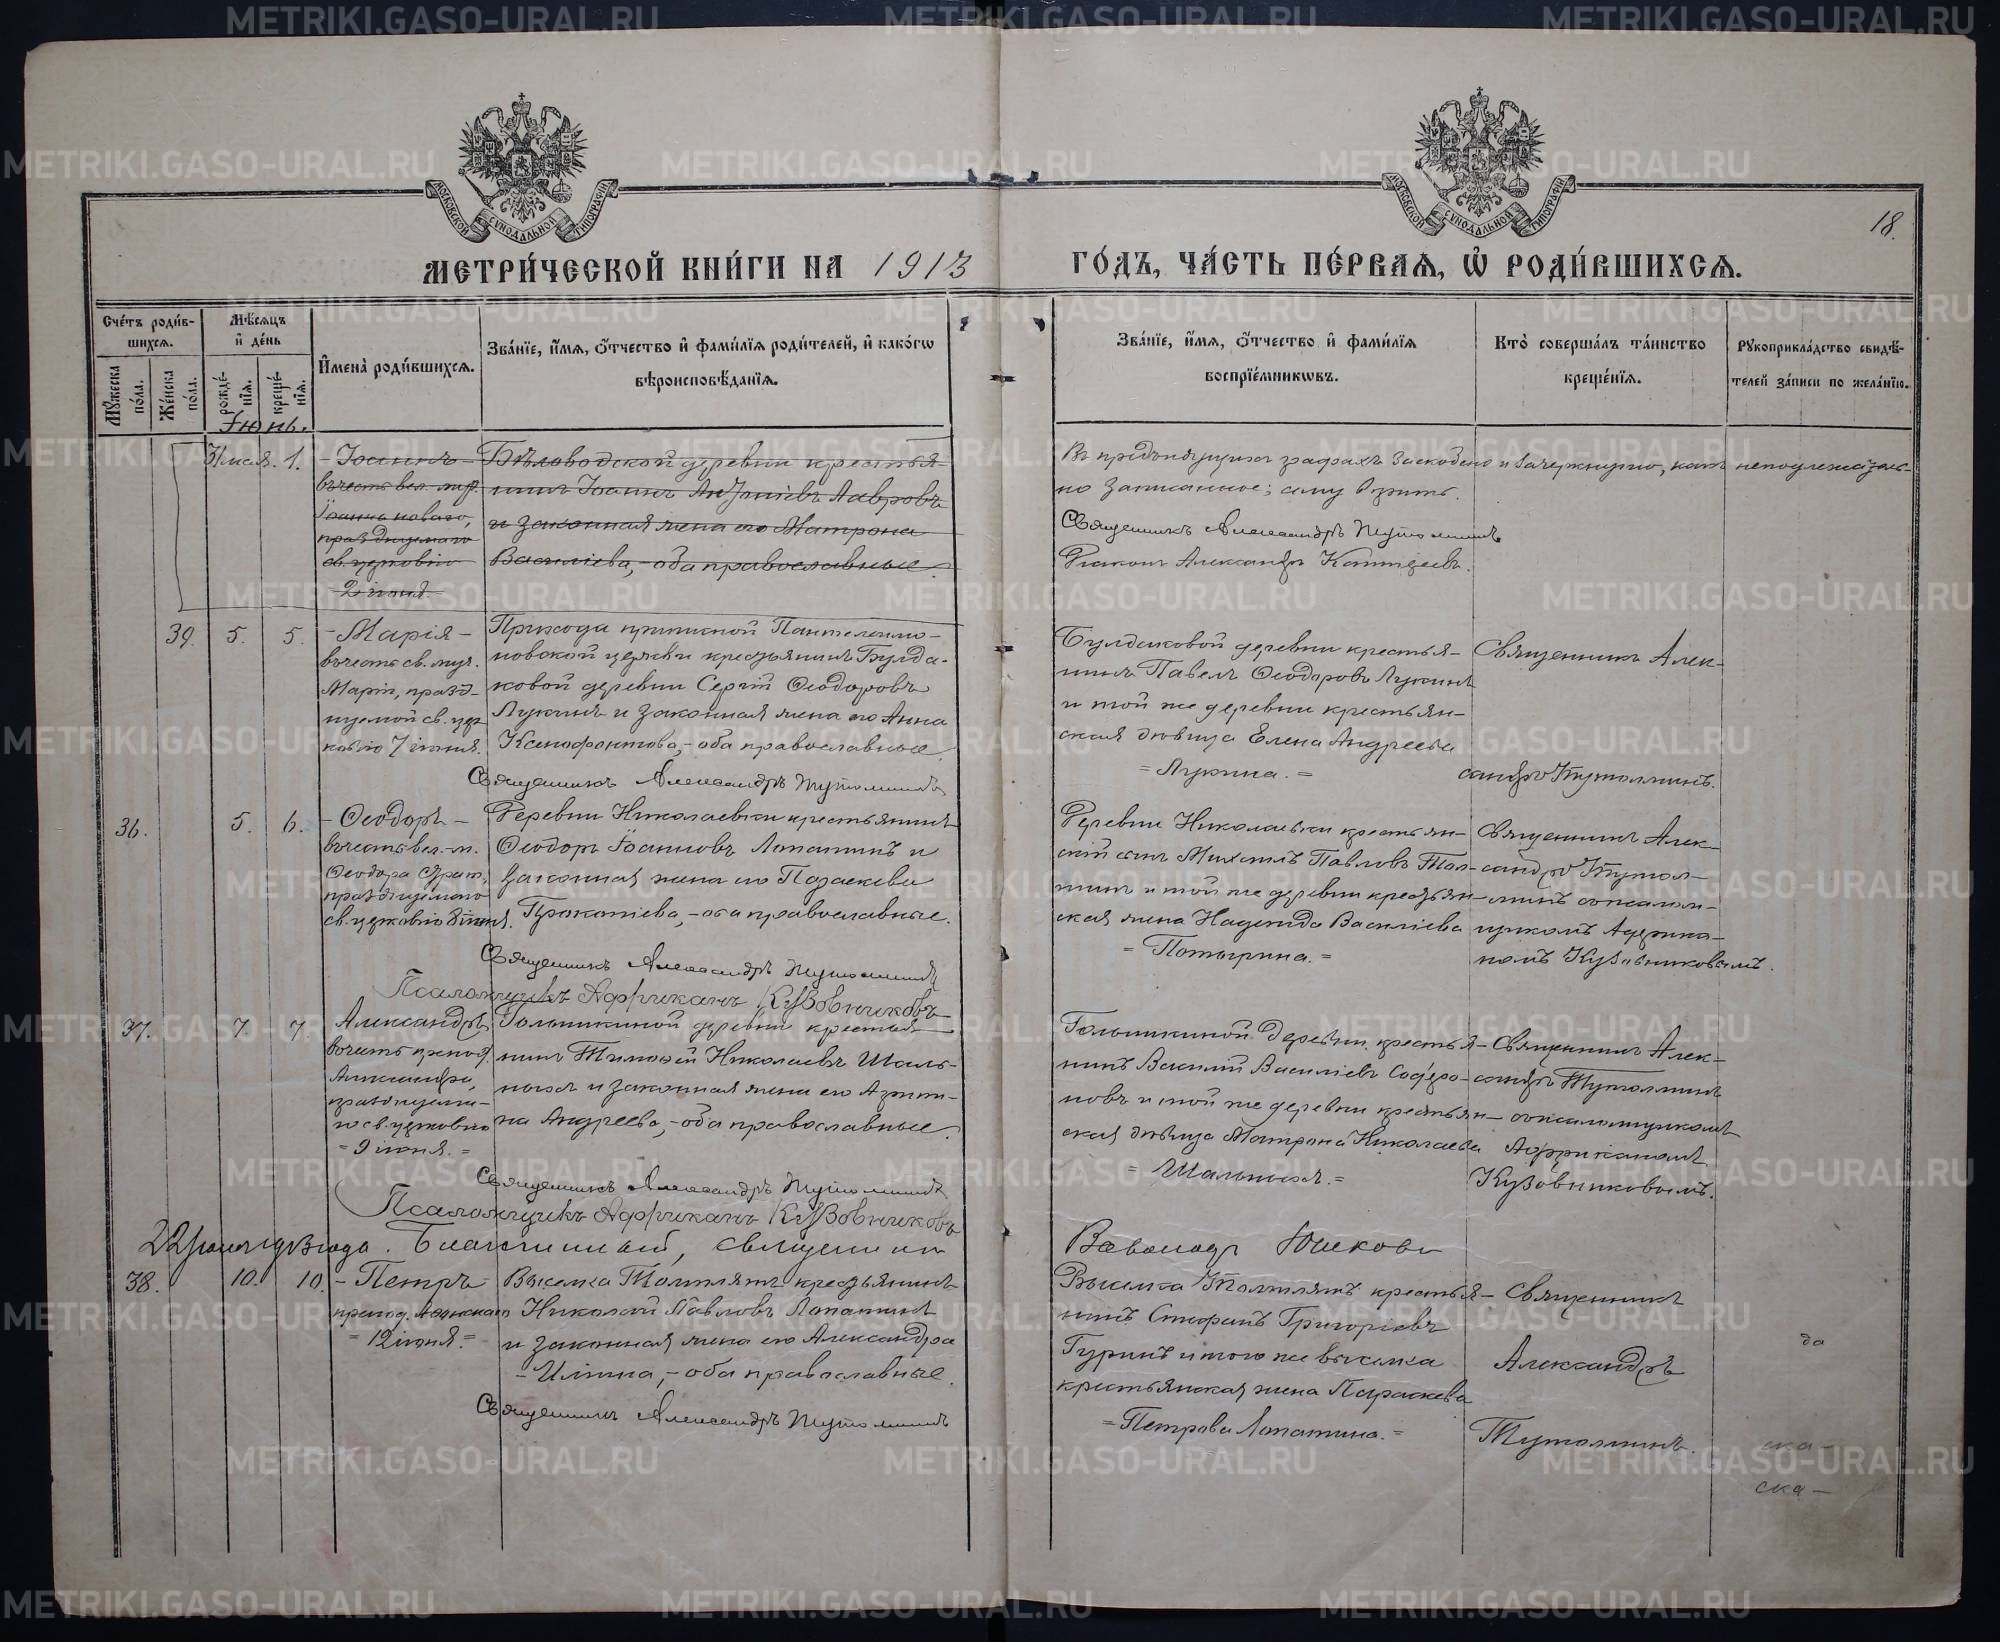 МОСКОВСКОЙ СѴНОДАЛЬНОЙ ТИПОГРАФІИ
МОСКОВСКОЙ СѴНОДАЛЬНОЙ ТИПОГРАФІИ
18.
МЕТРИ́ЧЕСКОЙ КНИ́ГИ НА 1913 ГО́ДЪ, ЧА́СТЬ ПЕ́РВАѦ, Ѡ҆ РОДИ́ВШИХСѦ.
Сче́тъ роди́в-
шихсѧ.
Мꙋ́жеска по́ла.
Же́нска по́ла.
Мѣ́сѧцъ
и҆ де́нь
рожде́-
нїѧ.
креще́-
нїѧ.
И҆мена̀ роди́вшихсѧ.
Зва́нїе, и҆́мѧ, ѻ҆́тчество и҆ фами́лїѧ роди́телей, и҆ како́гѡ
вѣроисповѣ́данїѧ.
Зва́нїе, и҆́мѧ, ѻ҆́тчество и҆ фами́лїѧ
воспрїе́мникѡвъ.
Кто̀ соверша́лъ та́инство
креще́нїѧ.
Рꙋкоприкла́дство свидѣ́-
телей за́писи по жела́нїю.
Іюнь.
31 мая. 1.
- Іоаннъ -
въ честь вел. муч.
Іоанна новаго,
празднуемаго
св. церковію
2 іюня.
Бѣловодской деревни крестья-
нинъ Іоаннъ Антоніевъ Лавровъ
и законная жена его Матрона
Василіева, - оба православные.
Въ предъидущихъ графахъ заскоблено и зачеркнутое, какъ неподлежатель-
но записанное; сему вѣрить.
Священникъ Александръ Тутолминъ
Діаконъ Александръ
39. 5. 5.
- Марія -
въ честь св. муч.
Маріи, празд-
нуемой св. цер-
ковію 7 іюня.
Прихода приписной Пантелеимо-
новской церкви крестьянинъ Булда-
ковой деревни Сергій Ѳеодоровъ
Лукинъ и законная жена его Анна
Ксенофонтова, - оба православные.
Священникъ Александръ Тутолминъ
Булдаковой деревни крестья-
нинъ Павелъ Ѳеодоровъ Лукинъ
и той же деревни крестьян-
ская дѣвица Елена Андреева
= Лукина. =
Священникъ Алек-
сандръ Тутолминъ.
36. 5. 6.
- Ѳеодоръ -
въ честь вел.-м.
Ѳеодора Страт.,
празднуемаго
св. церковію 8 іюня.
Деревни Николаевки крестьянинъ
Ѳеодоръ Іоанновъ Лопатинъ и
законная жена его Параскева
Прокопіева, - оба православные.
Священникъ Александръ Тутолминъ
Псаломщикъ Африканъ Кузовниковъ
Деревни Николаевки крестьян-
скій сынъ Михаилъ Павловъ Тол-
и той же деревни крестьян-
ская жена Надежда Василіева
= Потырина. =
Священникъ Алек-
сандръ Тутол-
минъ съ псалом-
щикомъ Африка-
номъ Кузовниковымъ.
37. 7. 7.
Александръ
въ честь препод.
Александра,
празднуема-
го св. церковію
= 9 іюня. =
Гольшкиной деревни крестья-
нинъ Тимофей Николаевъ Шаль-
ныхъ и законная жена его Агрипи-
на Андреева, - оба православные.
Священникъ Александръ Тутолминъ
Псаломщикъ Африканъ Кузовниковъ
Гольшкиной деревни крестья-
нинъ Василій Василіевъ Софро-
новъ и той же деревни крестьян-
ская дѣвица Матрона Николаева
= Шальныхъ. =
Священникъ Алек-
сандръ Тутолминъ
съ псаломщикомъ
Африканомъ
Кузовниковымъ.
22 іюня 1913 года. Благочинный, священникъ
38. 10. 10.
- Петръ -
препод. Аѳонскаго
= 12 іюня. =
Выселка Толмлятъ крестьянинъ
Николай Павловъ Лопатинъ
и законная жена его Александра
- Ильина, - оба православные.
Священникъ Александръ Тутолминъ
Выселка Толмлятъ крестья-
нинъ Стефанъ Григоріевъ
Гуринъ и того же выселка
крестьянская жена Параскева
= Петрова Лопатина. =
Священникъ
Александръ
Тутолминъ.
да
ска-
ска-
METRIKI.GASO-URAL.RU